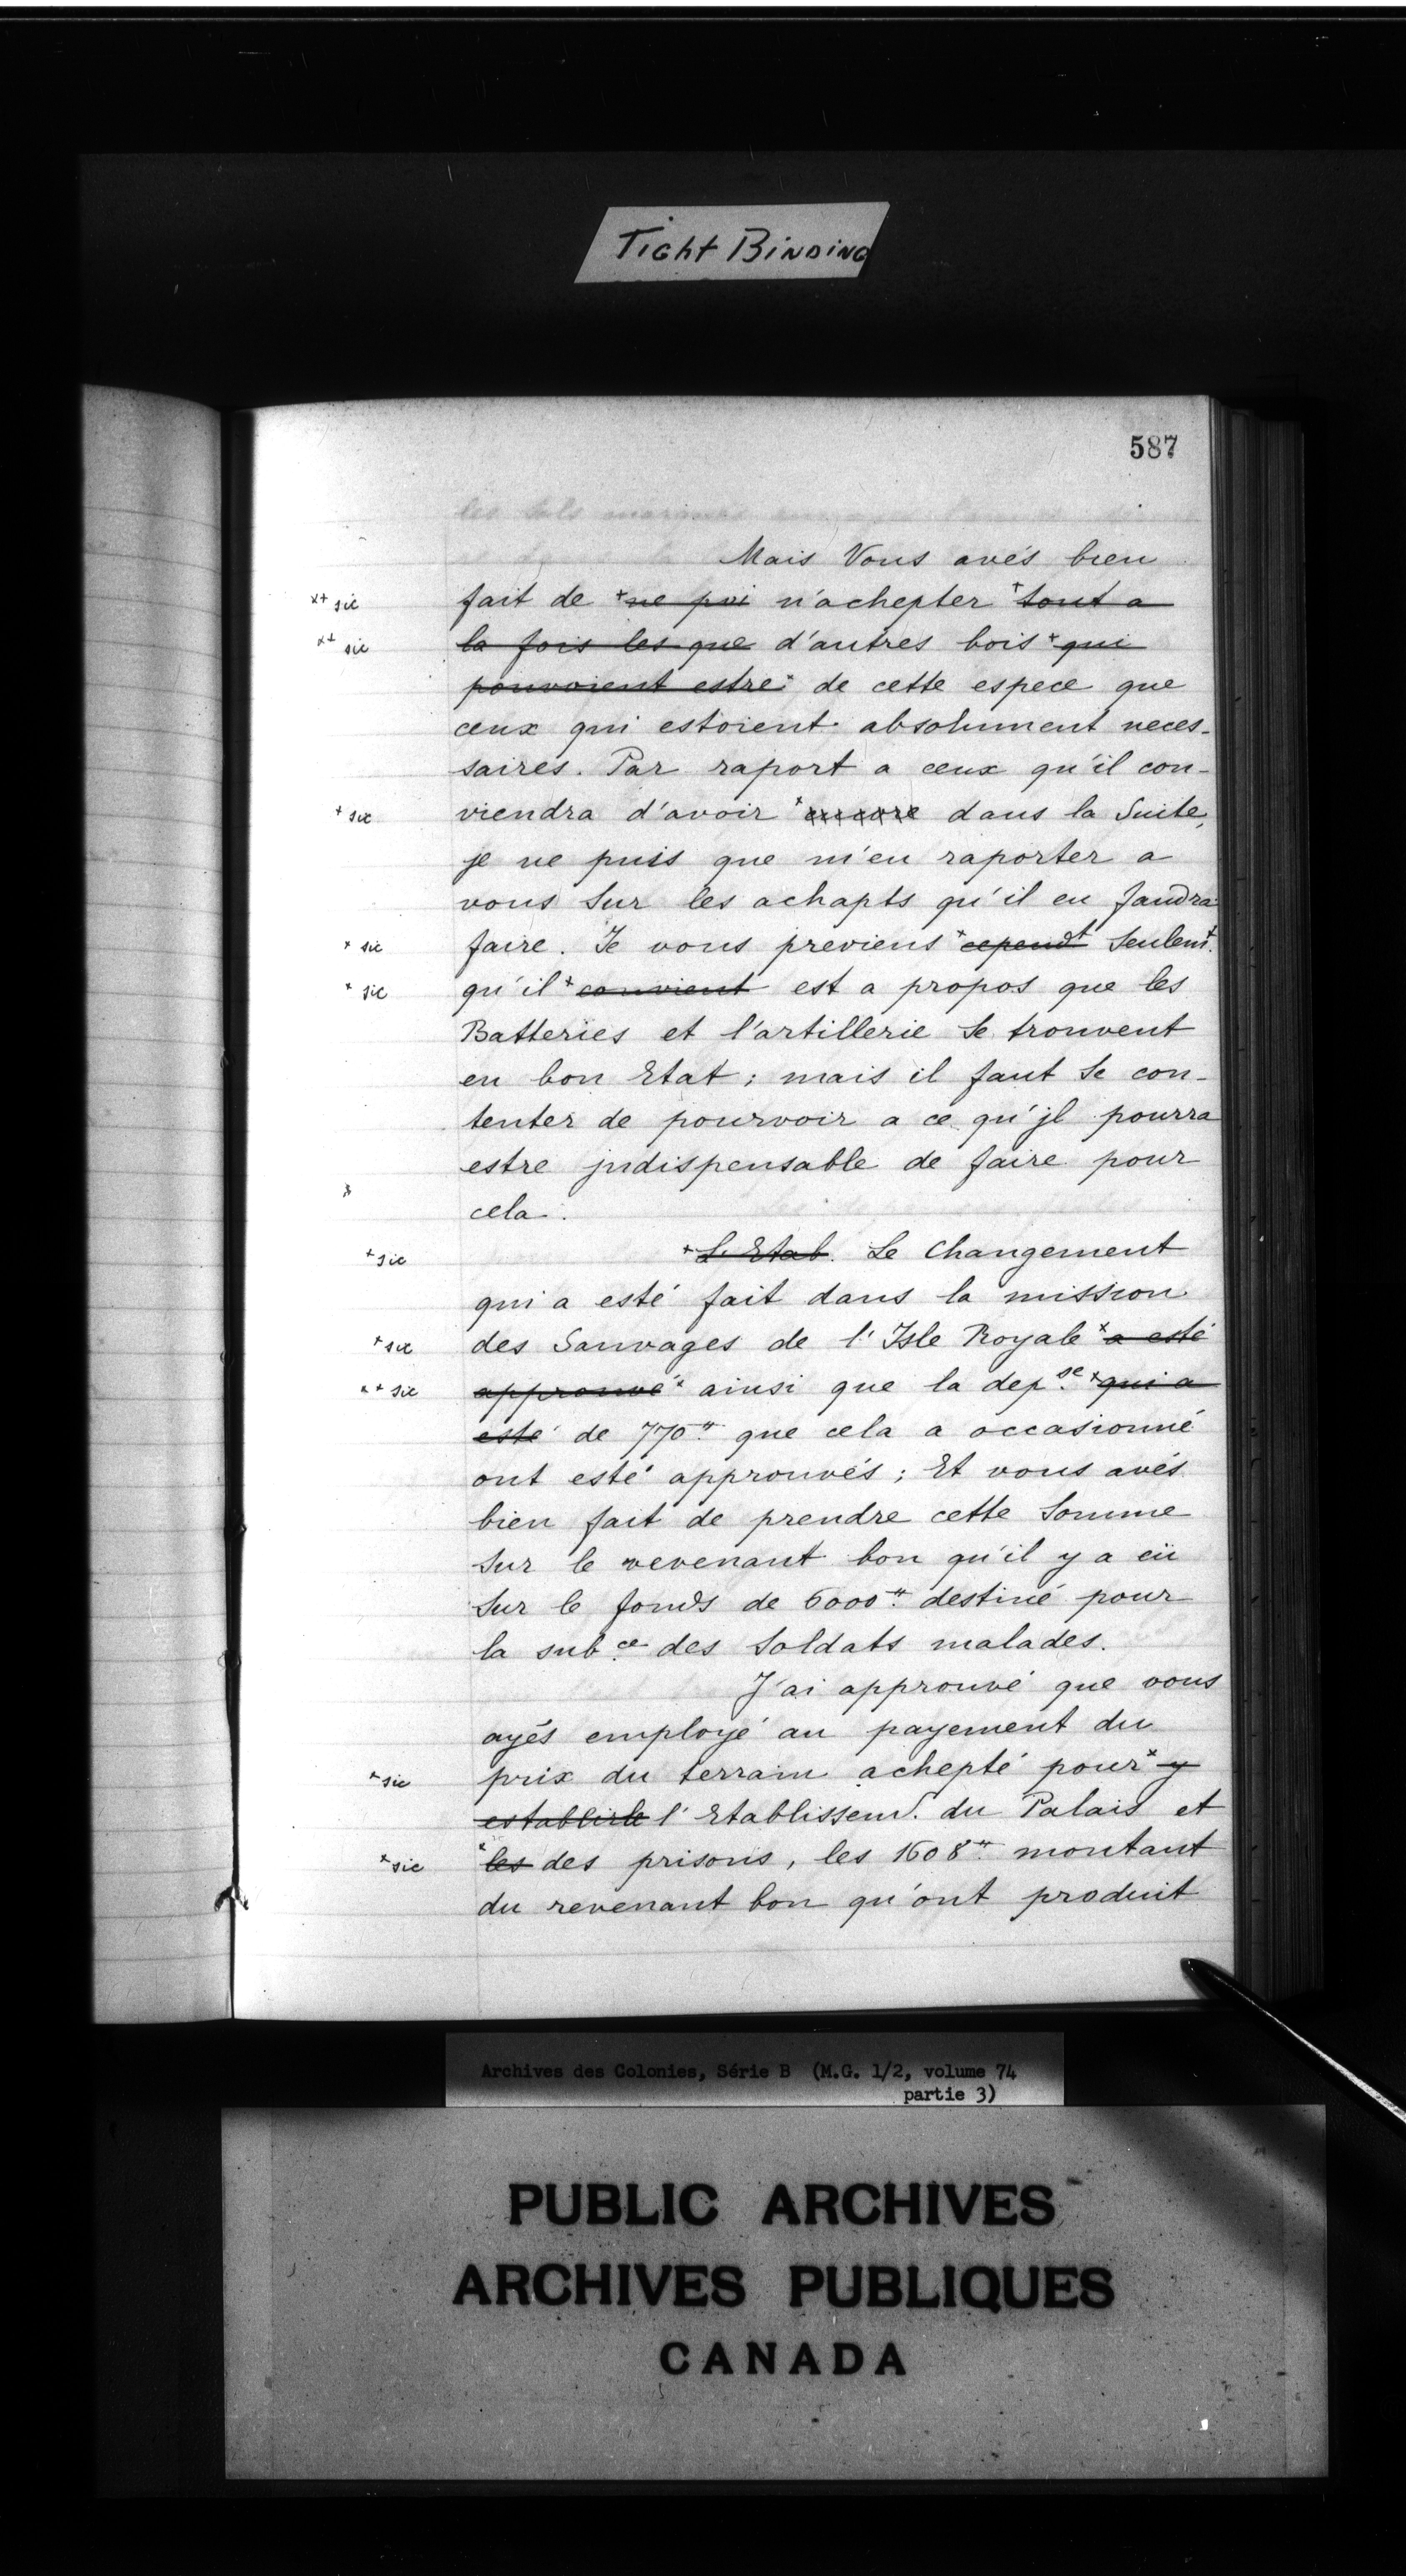 Tight Binding
587
Mais Vous avés bien
x+ sic fait de + ne poi n'achepter + tout a
x+ sic la fois les que d'autres bois + qui
pouvoient estre x de cette espece que
ceux qui estoient absolument neces-
saires. Par raport a ceux qu'il con-
+ sic viendra d'avoir x encore dans la Suite,
je ne puis que m'en raporter a
vous Sur les achapts qu'il en faudra
x sic faire. Je vous previens x cependt Seulemt.
x sic qu'il x convient est a propos que les
Batteries et l'artillerie Se trouvent
en bon Etat ; mais il faut Se con-
tenter de pourvoir a ce qu'jl pourra
estre jndispensable de faire pour
cela.
+ sic + L'Etab. Le Changement
qui a esté fait dans la mission
+ sic des Sauvages de l'Isle Royale x a esté
x + sic approuvé x ainsi que la depse. x qui a
esté de 770# que cela a occasionné
ont esté approuvés ; Et vous avés
bien fait de prendre cette Somme
Sur le revenant bon qu'il y a eü
Sur le fonds de 6000# destiné pour
la subce des Soldats malades.
J'ai approuvé que vous
ayés employé au payement du
x sic prix du terrain achepté pour x y
establir le l'Etablissemt. du Palais et
x sic x les des prisons, les 1608# montant
du revenant bon qu'ont produit
Archives des Colonies, Série B (M.G. 1/2, volume 74
partie 3)
PUBLIC ARCHIVES
ARCHIVES PUBLIQUES
CANADA